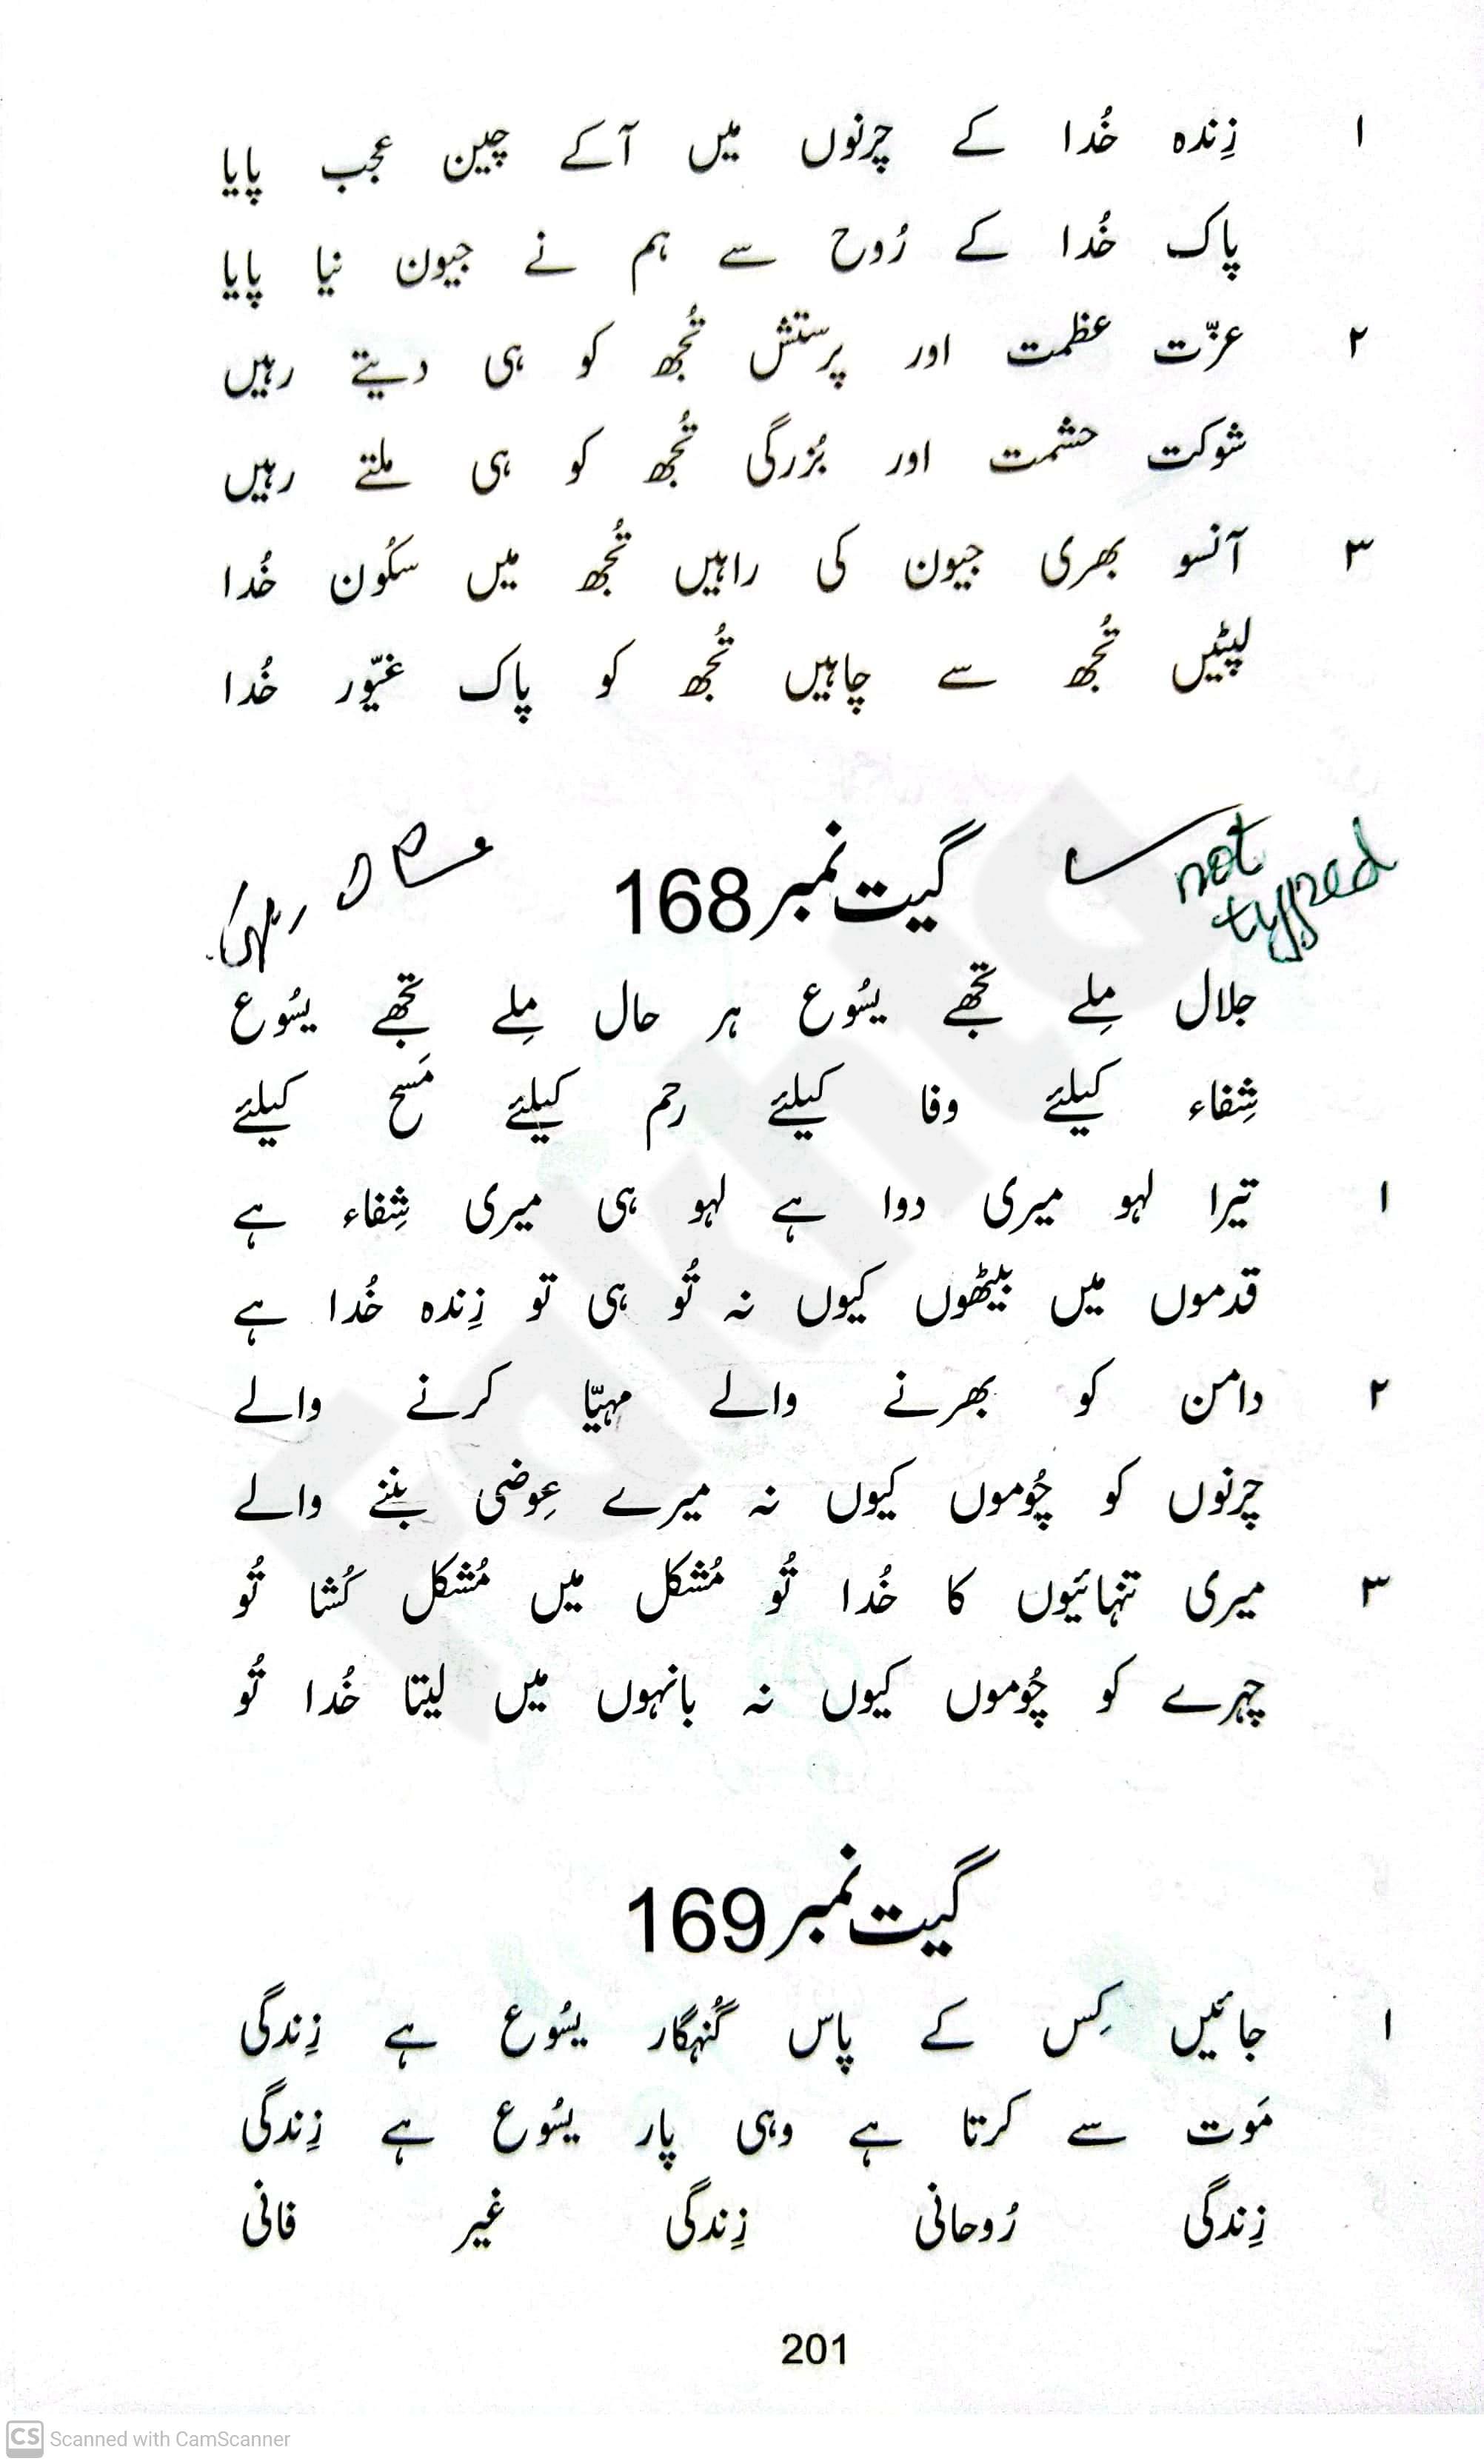 ۱ زِندہ خُدا کے چرنوں میں آکے چین عجب پایا
پاک خُدا کے رُوح سے ہم نے جیون نیا پایا
۲ عزّت عظمت اور پرستش تُجھ کو ہی دیتے رہیں
شوکت حشمت اور بُزرگی تُجھ کو ہی ملتے رہیں
۳ آنسو بھری جیون کی راہیں تُجھ میں سکُون خُدا
لپٹیں تُجھ سے چاہیں تُجھ کو پاک غیّور خُدا
گیت نمبر 168
not
typed
جلال مِلے تجھے یسُوع ہر حال مِلے تجھے یسُوع
شِفاء کیلئے وفا کیلئے رحم کیلئے مَسح کیلئے
۱ تیرا لہو میری دوا ہے لہو ہی میری شِفاء ہے
قدموں میں بیٹھوں کیوں نہ تُو ہی تو زِندہ خُدا ہے
۲ دامن کو بھرنے والے مہیّا کرنے والے
چرنوں کو چُوموں کیوں نہ میرے عِوضی بننے والے
۳ میری تنہائیوں کا خُدا تُو مُشکل میں مُشکل کُشا تُو
چہرے کو چُوموں کیوں نہ بانہوں میں لیتا خُدا تُو
گیت نمبر 169
۱ جائیں کِس کے پاس گُنہگار یسُوع ہے زِندگی
مَوت سے کرتا ہے وہی پار یسُوع ہے زِندگی
زِندگی رُوحانی زِندگی غیر فانی
201
CS Scanned with CamScanner
Fakhta